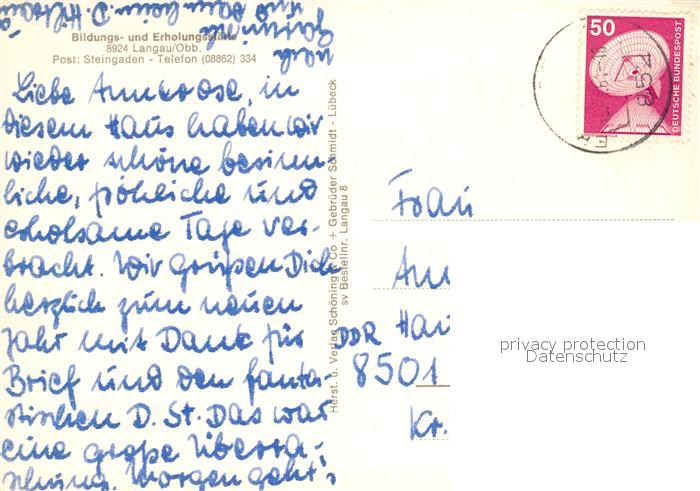 Bildungs- und Erholungsstätte
8924 Langau/Obb.
Post: Steingaden - Telefon (08862) 334
Liebe Annerose, in
diesem Haus haben wir
wieder schöne besinn-
liche, fröhliche und
erholsame Tage ver-
bracht. Wir grüßen Dich
herzlich zum neuen
Jahr mit Dank für
Brief und den fanta-
stischen D. St. Das war
eine große Überra-
schung. Morgen geht's
nach
und Dein D.
Herst. u. Verlag Schöning & Co + Gebrüder Schmidt - Lübeck
sv Bestellnr. Langau 8
50
DEUTSCHE BUNDESPOST
Frau
Ann
DDR Hai
8501
Kr.
privacy protection
Datenschutz